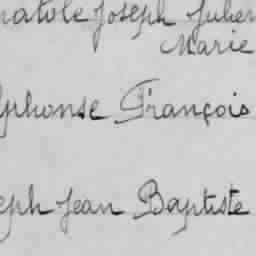 natole Joseph Julien
Marie
lphonse François
eph Jean Baptiste